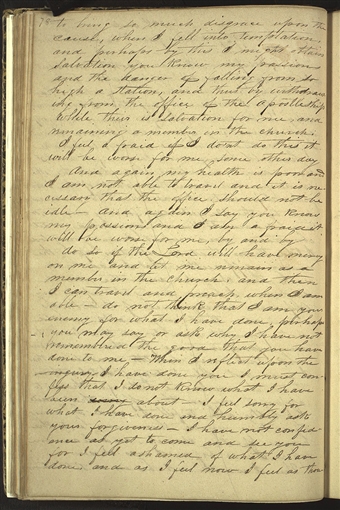 78 to bring so much disgrace upon the
cause, when I fell into temptation,
and perhaps by this I might attain
salvation you know my passions
and the danger of falling from so
high a station, and thus by withdraw-
ing from the office of the apostleship
while their is salvation for me, and
remaining a member in the church
I feel afraid if I do'nt do this it
will be worse for me, some other day
And again my health is poor and
I am not able to travel and it is ne
cessary that the office should not be
idle – And again I say you know
my passions and I am afraid it
will be worse for me, by and by
do so if the Lord will have mercy
on me and let me remain as a
member in the church, and then
I can travel and preach, when I am
able – do not think that I am your
enemy for what I have done, perhaps
you may say or ask why I have not
remembered the good that you have
done to me – When I reflect upon the
injury I have done you I must con-
fess that I do not know what I have
been about – I feel sorry for
what I have done and humbly ask
your forgiveness – I have not confid
ence as yet to come and see you
for I feel ashamed of what I have
done, and as I feel now I feel as tho